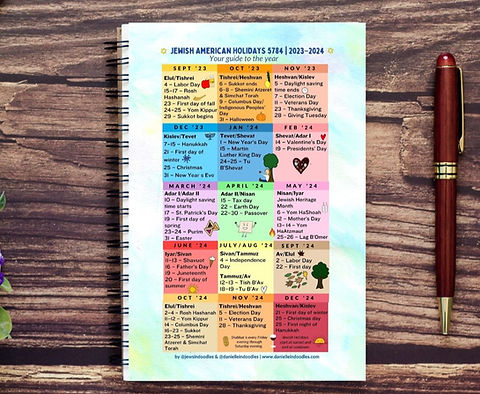 JEWISH AMERICAN HOLIDAYS 5784 | 2023-2024
Your guide to the year
SEPT '23
Elul/Tishrei
4 – Labor Day
15-17 – Rosh
Hashanah
23 – First day of fall
24-25 – Yom Kippur
29 – Sukkot begins
OCT '23
Tishrei/Heshvan
6 – Sukkot ends
6-8 – Shemini Atzeret
& Simchat Torah
9 – Columbus Day/
Indigenous Peoples'
Day
31 – Halloween
NOV '23
Heshvan/Kislev
5 – Daylight saving
time ends
7 – Election Day
11 – Veterans Day
23 – Thanksgiving
28 – Giving Tuesday
DEC '23
Kislev/Tevet
7-15 – Hanukkah
21 – First day of
winter
25 – Christmas
31 – New Year's Eve
JAN '24
Tevet/Shevat
1 – New Year's Day
15 – Martin
Luther King Day
24-25 – Tu
B'Shevat
FEB '24
Shevat/Adar I
14 – Valentine's Day
19 – Presidents' Day
MARCH '24
Adar I/Adar II
10 – Daylight saving
time starts
17 – St. Patrick's Day
19 – First day of
spring
23-24 – Purim
31 – Easter
APRIL '24
Adar II/Nisan
15 – Tax day
22 – Earth Day
22-30 – Passover
MAY '24
Nisan/Iyar
Jewish Heritage
Month
6 – Yom HaShoah
12 – Mother's Day
13-14 – Yom
HaAtzmaut
25-26 – Lag B'Omer
JUNE '24
Iyar/Sivan
11-13 – Shavuot
16 – Father's Day
19 – Juneteenth
20 – First day of
summer
JULY/AUG '24
Sivan/Tammuz
4 – Independence
Day
Tammuz/Av
12-13 – Tish B'Av
18-19 – Tu B'Av
SEPT '24
Av/Elul
2 – Labor Day
22 – First day
OCT '24
Elul/Tishrei
2-4 – Rosh Hashanah
11-12 – Yom Kippur
14 – Columbus Day
16-23 – Sukkot
23-25 – Shemini
Atzeret & Simchat
Torah
NOV '24
Tishrei/Heshvan
5 – Election Day
11 – Veterans Day
28 – Thanksgiving
Shabbat is every Friday
evening through
Saturday evening
DEC '24
Heshvan/Kislev
21 – First day of winter
25 – Christmas
25 – First night of
Hanukkah
Jewish holidays
start at sunset and
end at sundown
by @jewsindoodles & @danielleindoodles | www.danielleindoodles.com